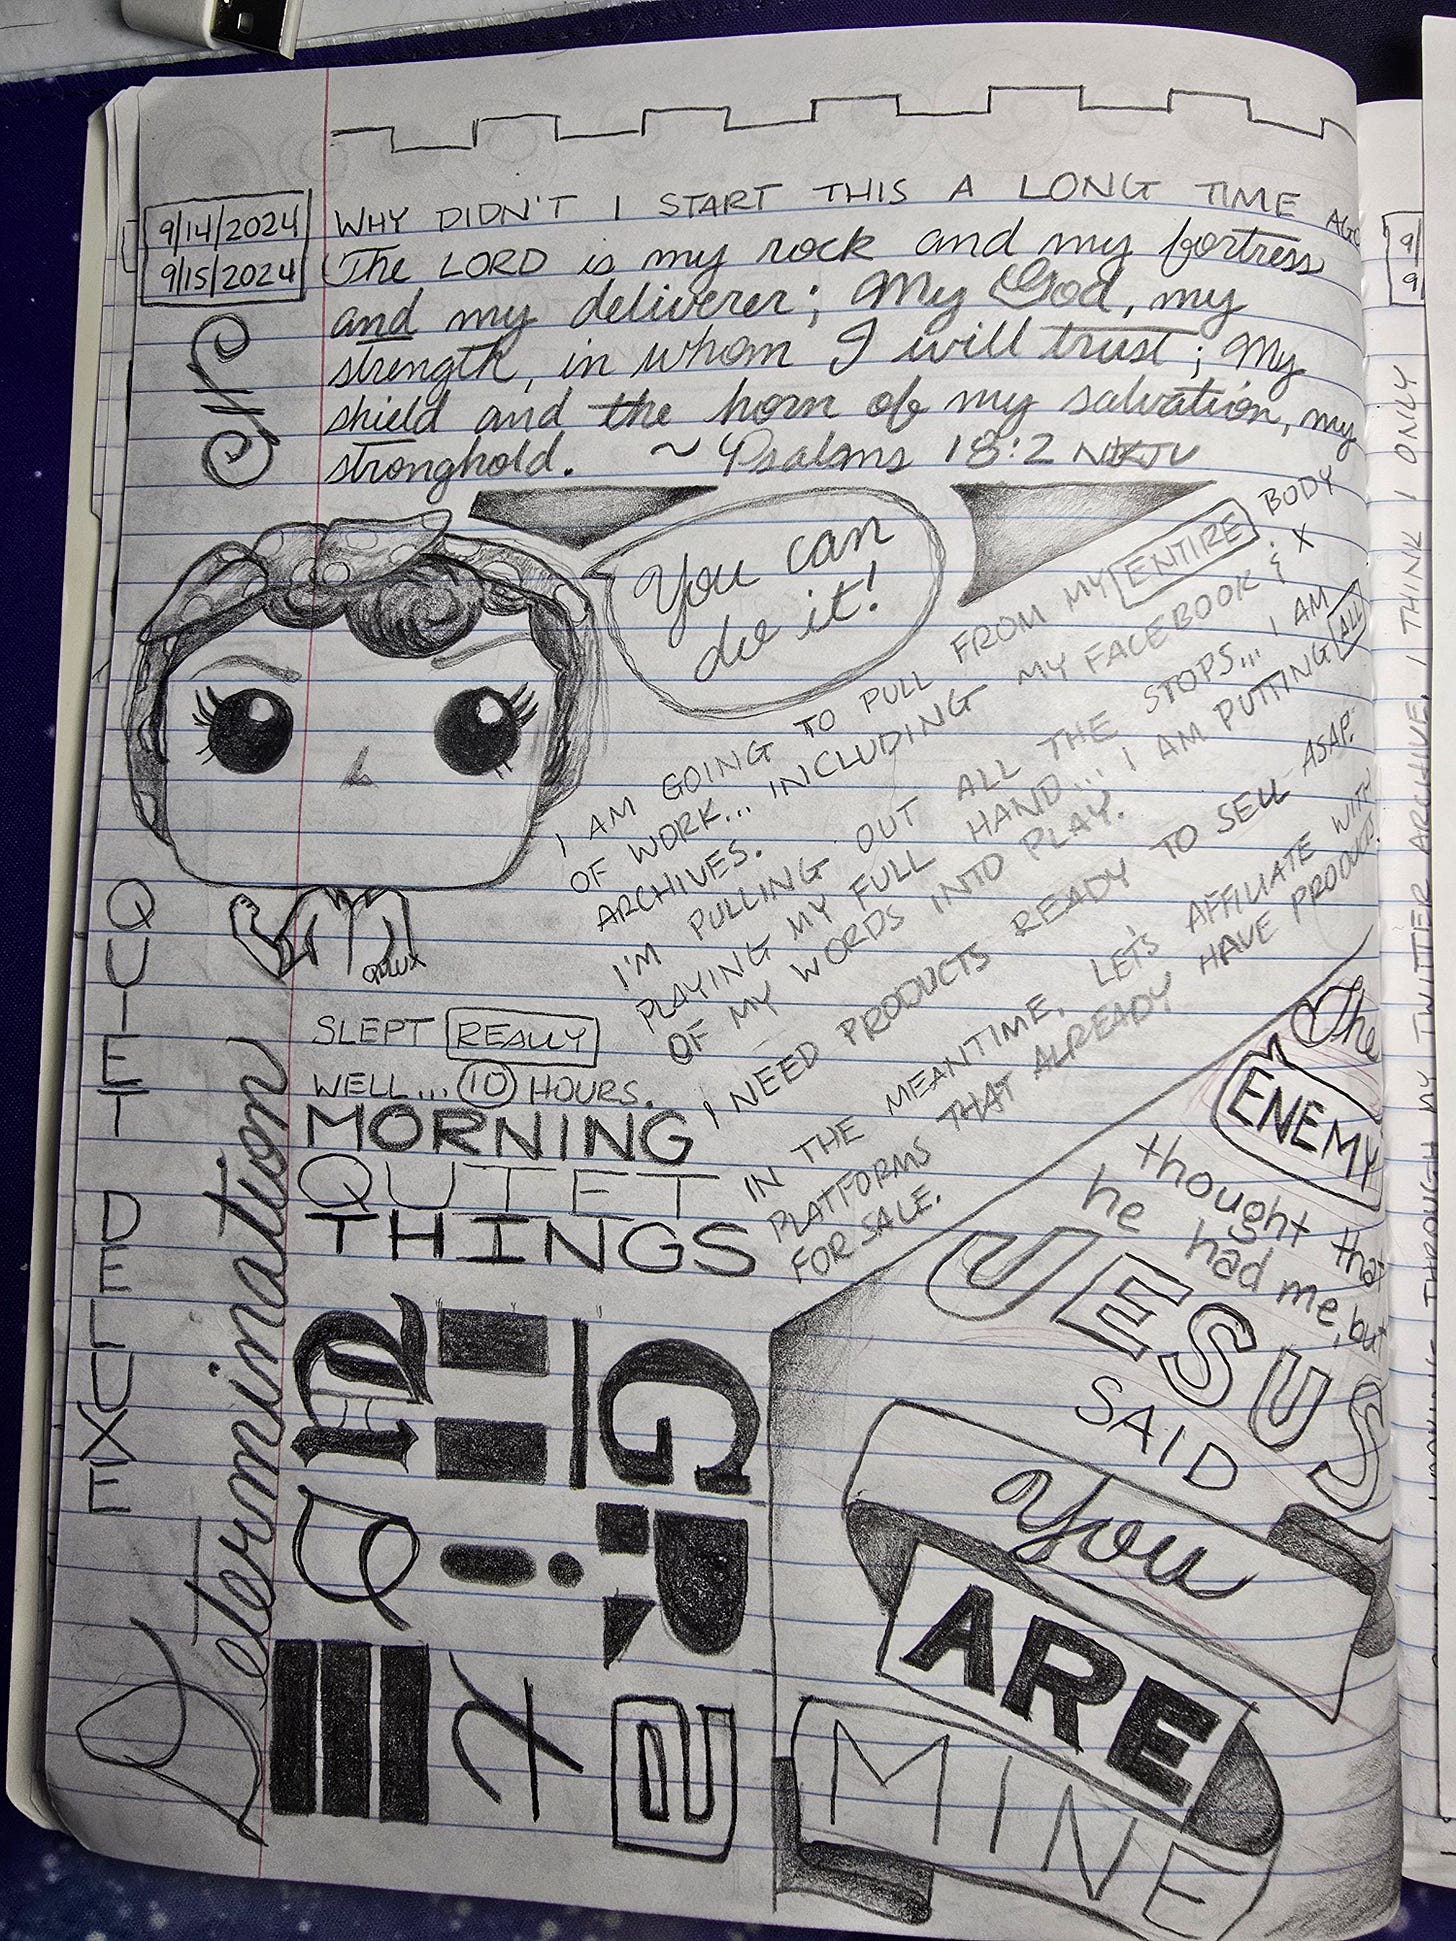 9/14/2024
9/15/2024
WHY DIDN'T I START THIS A LONG TIME AGO
The LORD is my rock and my fortress
and my deliverer; My God, my
strength, in whom I will trust; My
shield and the horn of my salvation, my
stronghold. ~ Psalms 18:2 NKJV
You can
do it!
I AM GOING TO PULL FROM MY ENTIRE BODY
OF WORK... INCLUDING MY FACEBOOK & X
ARCHIVES.
I'M PULLING OUT ALL THE STOPS... I AM
PLAYING MY FULL HAND... I AM PUTTING ALL
OF MY WORDS INTO PLAY.
I NEED PRODUCTS READY TO SELL ASAP.
IN THE MEANTIME, LET'S AFFILIATE WITH
PLATFORMS THAT ALREADY HAVE PRODUCTS
FOR SALE.
SLEPT REALLY
WELL... 10 HOURS.
MORNING
QUIET
THINGS
QUIET DELUXE
Determination
The
ENEMY
thought that
he had me, but
JESUS
SAID
You
ARE
MINE
9/
9/
THROUGH MY TWITTER ARCHIVE. I THINK I ONLY